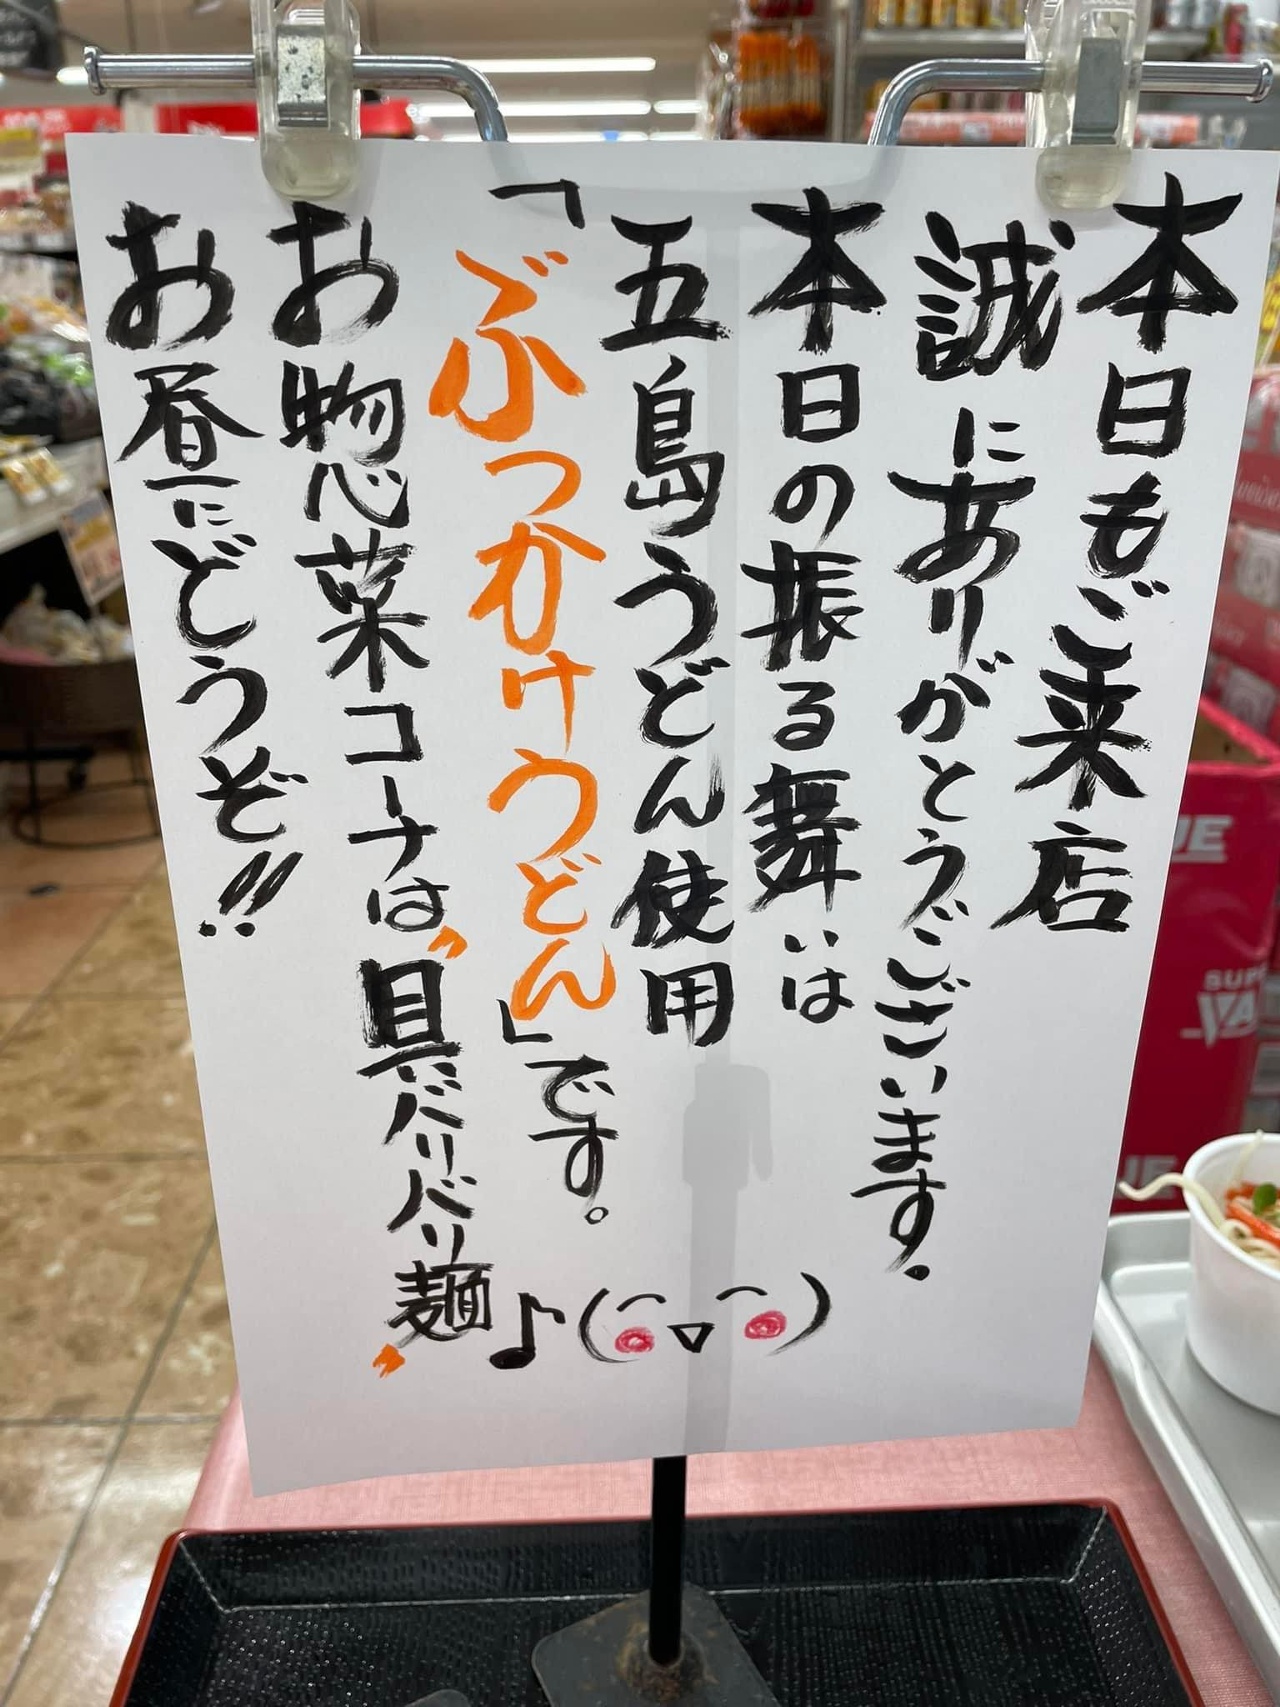 本日もご来店
誠にありがとうございます。
本日の振る舞いは
五島うどん使用
「ぶっかけうどん」です。
お惣菜コーナーは〝具だくさんバリバリ麺〟♪
お昼にどうぞ!!